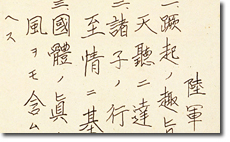 陸軍
一、蹶起ノ趣旨
天聽ニ達
二、諸子ノ行
至情ニ基
三、國體ノ眞
風ヲモ含ム
ヘス